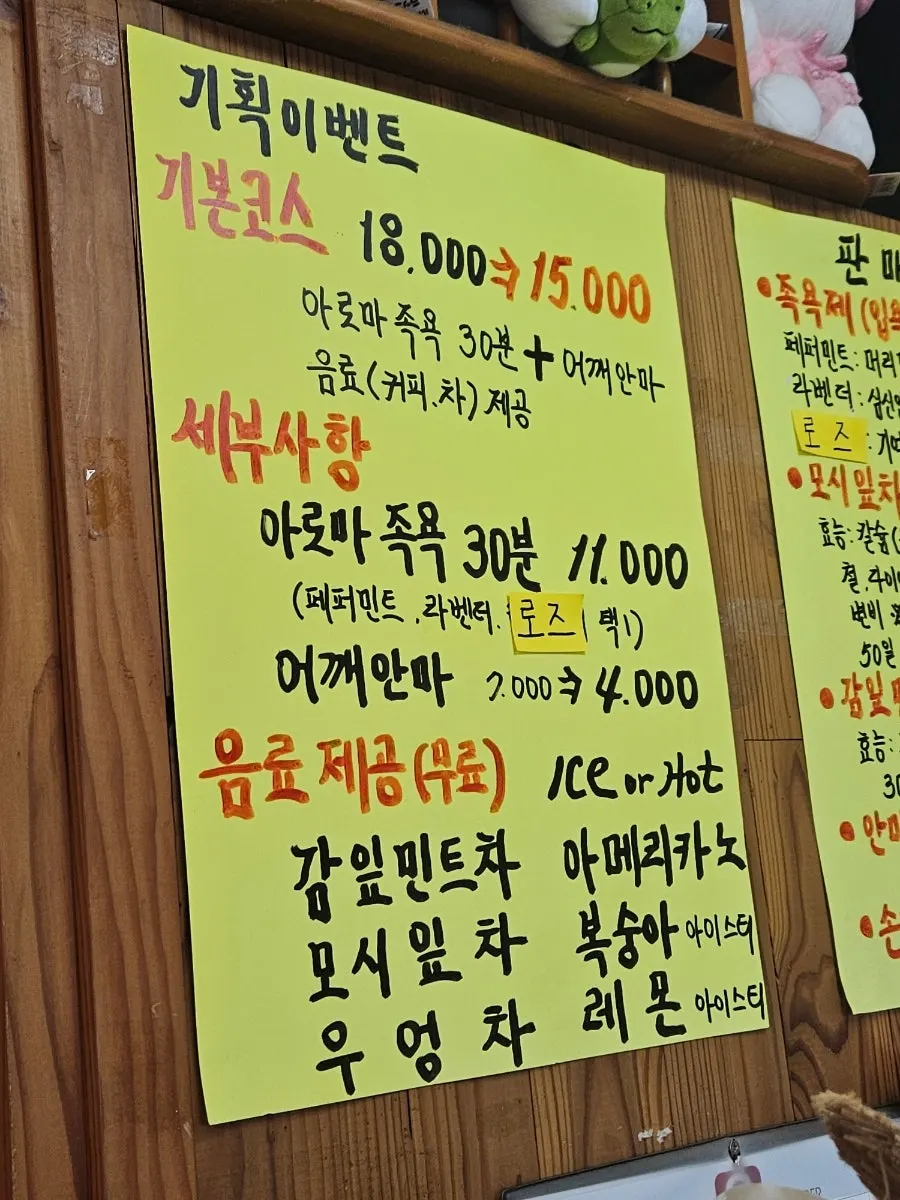 기획이벤트
기본코스
18.000⇒15.000
아롯마 족욕 30분 + 어깨안마
음료(커피.차) 제공
세부사항
아롯마 족욕 30분 11.000
(페퍼민트.라벤더. 로즈 택1)
어깨안마 7.000⇒4.000
음료 제공(무료) Ice or Hot
감잎민트차 아메리카노
모시잎차 복숭아 아이스티
우엉차 레몬 아이스티
판매
•족욕제(입욕
페퍼민트: 머리
라벤더: 심신안
로즈:
•모시잎차
효능: 칼슘(
철.
변비
50일
•감잎
효능:
30
•안마
•손